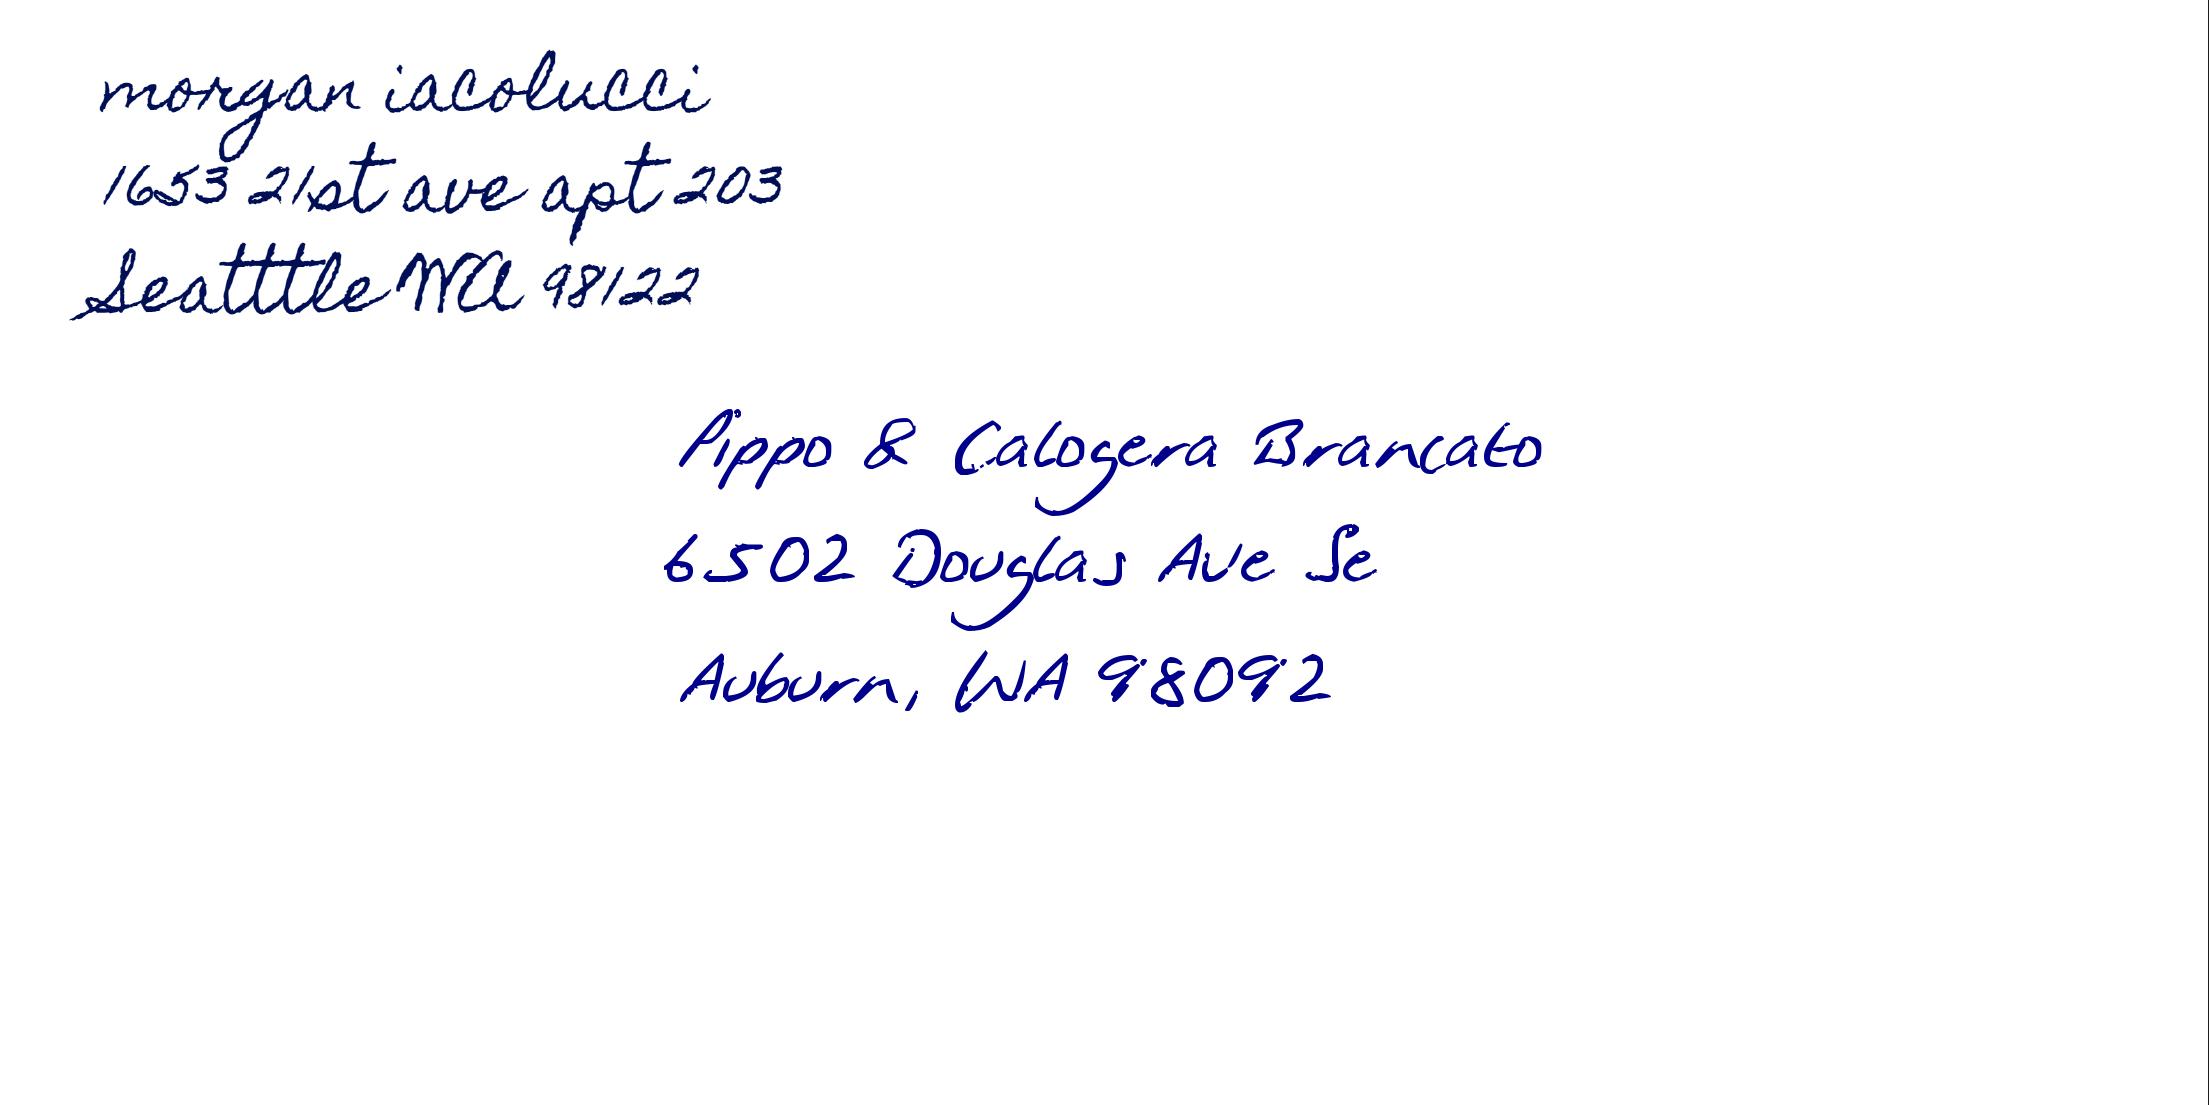 morgan iacolucci
1653 21st ave apt 203
Seatttle WA 98122
Pippo & Calogera Brancato
6502 Douglas Ave Se
Auburn, WA 98092